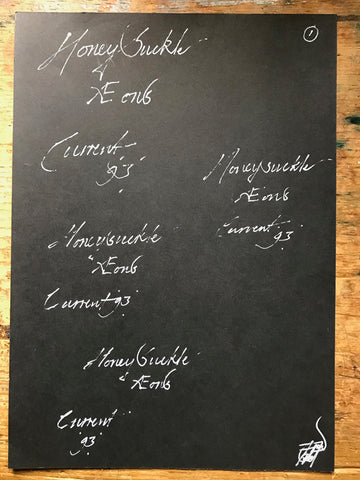 ①
HoneySuckle
Æons
Current
93
Honeysuckle
Æons
Current
93
Honeysuckle
" Æons
Current 93
HoneySuckle
" Æons
Current
93